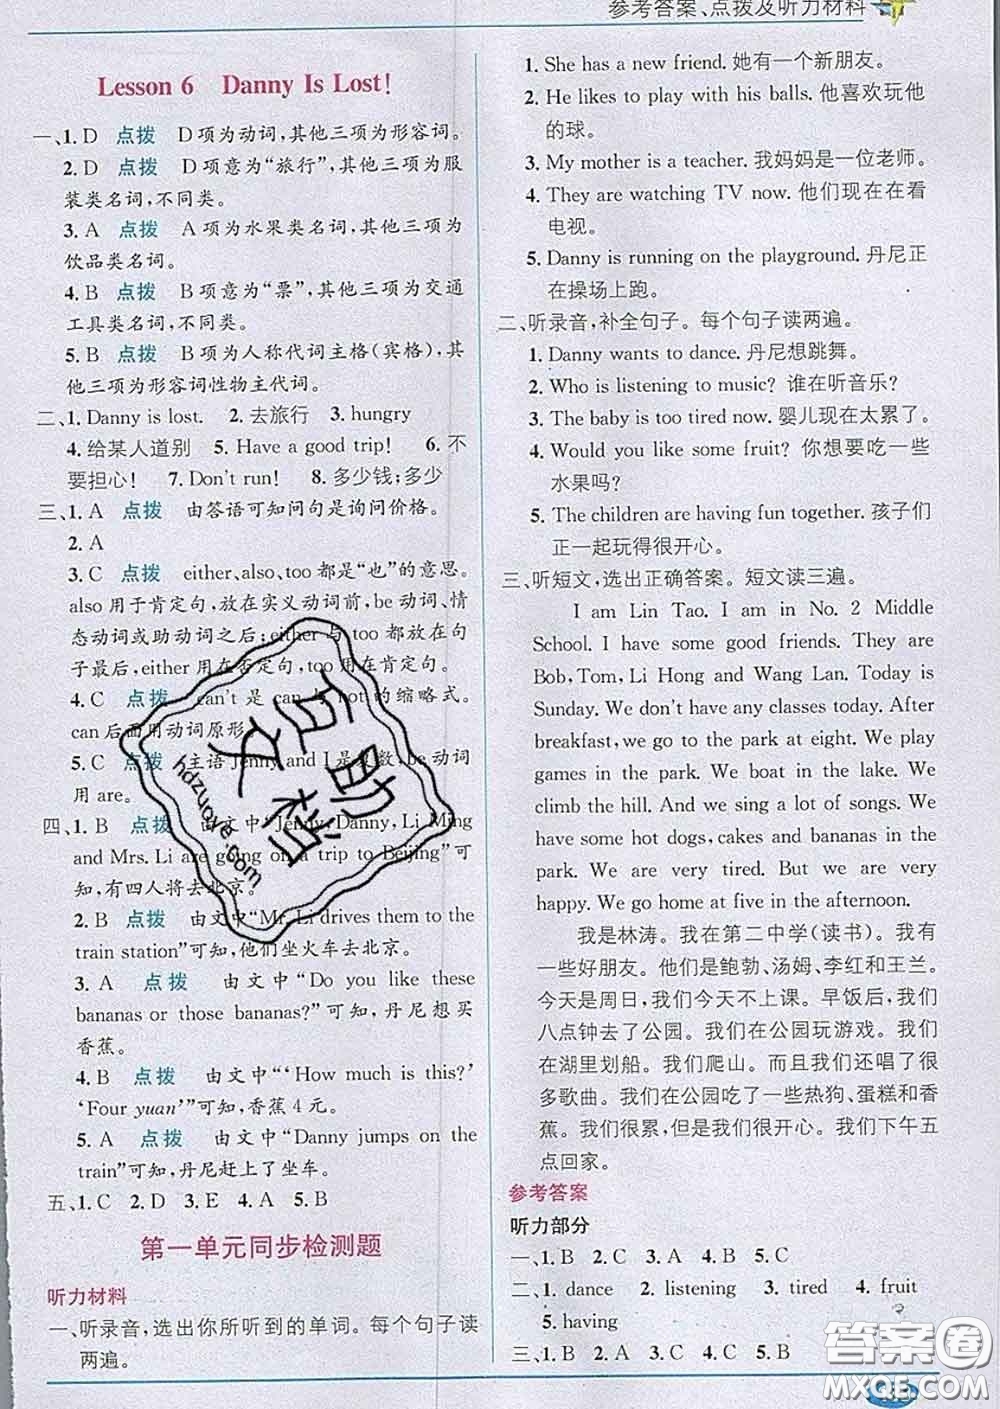 参考答案、点拨及听力材料
Lesson 6 Danny Is Lost!
一、1. D 点拨 D项为动词,其他三项为形容词。
2. D 点拨 D项意为“旅行”,其他三项为服
装类名词,不同类。
3. A 点拨 A项为水果类名词,其他三项为
饮品类名词。
4. B 点拨 B项意为“票”,其他三项为交通
工具类名词,不同类。
5. B 点拨 B项为人称代词主格(宾格),其
他三项为形容词性物主代词。
二、1. Danny is lost. 2. 去旅行 3. hungry
4. 给某人道别 5. Have a good trip! 6. 不
要担心! 7. Don't run! 8. 多少钱;多少
三、1. A 点拨 由答语可知问句是询问价格。
2. A
3. C 点拨 either、also、too都是“也”的意思。
also用于肯定句,放在实义动词前,be动词、情
态动词或助动词之后;either与too都放在句
子最后,either用在否定句,too用在肯定句。
4. C 点拨 can't是can not的缩略式。
can后面用动词原形。
5. C 点拨 主语Jenny and I是复数,be动词
用are。
四、1. B 点拨 由文中“Jenny, Danny, Li Ming
and Mrs. Li are going on a trip to Beijing”可
知,有四人将去北京。
2. B 点拨 由文中“Mr. Li drives them to the
train station”可知,他们坐火车去北京。
3. A 点拨 由文中“Do you like these
bananas or those bananas?”可知,丹尼想买
香蕉。
4. B 点拨 由文中“‘How much is this?’
‘Four yuan’”可知,香蕉4元。
5. A 点拨 由文中“Danny jumps on the
train”可知,丹尼赶上了坐车。
五、1. C 2. D 3. E 4. A 5. B
第一单元同步检测题
听力材料
一、听录音,选出你所听到的单词。每个句子读
两遍。
1. She has a new friend. 她有一个新朋友。
2. He likes to play with his balls. 他喜欢玩他
的球。
3. My mother is a teacher. 我妈妈是一位老师。
4. They are watching TV now. 他们现在在看
电视。
5. Danny is running on the playground. 丹尼正
在操场上跑。
二、听录音,补全句子。每个句子读两遍。
1. Danny wants to dance. 丹尼想跳舞。
2. Who is listening to music? 谁在听音乐?
3. The baby is too tired now. 婴儿现在太累了。
4. Would you like some fruit? 你想要吃一些
水果吗?
5. The children are having fun together. 孩子们
正一起玩得很开心。
三、听短文,选出正确答案。短文读三遍。
I am Lin Tao. I am in No. 2 Middle
School. I have some good friends. They are
Bob, Tom, Li Hong and Wang Lan. Today is
Sunday. We don't have any classes today. After
breakfast, we go to the park at eight. We play
games in the park. We boat in the lake. We
climb the hill. And we sing a lot of songs. We
have some hot dogs, cakes and bananas in the
park. We are very tired. But we are very
happy. We go home at five in the afternoon.
我是林涛。我在第二中学(读书)。我有
一些好朋友。他们是鲍勃、汤姆、李红和王兰。
今天是周日,我们今天不上课。早饭后,我们
八点钟去了公园。我们在公园玩游戏。我们
在湖里划船。我们爬山。而且我们还唱了很
多歌曲。我们在公园吃了一些热狗、蛋糕和香
蕉。我们很累,但是我们很开心。我们下午五
点回家。
参考答案
听力部分
一、1. B 2. C 3. A 4. B 5. C
二、1. dance 2. listening 3. tired 4. fruit
5. having
三、1. B 2. A 3. C 4. A 5. B
互助文档
hdzuoye.com
答案圈
MXQE.COM